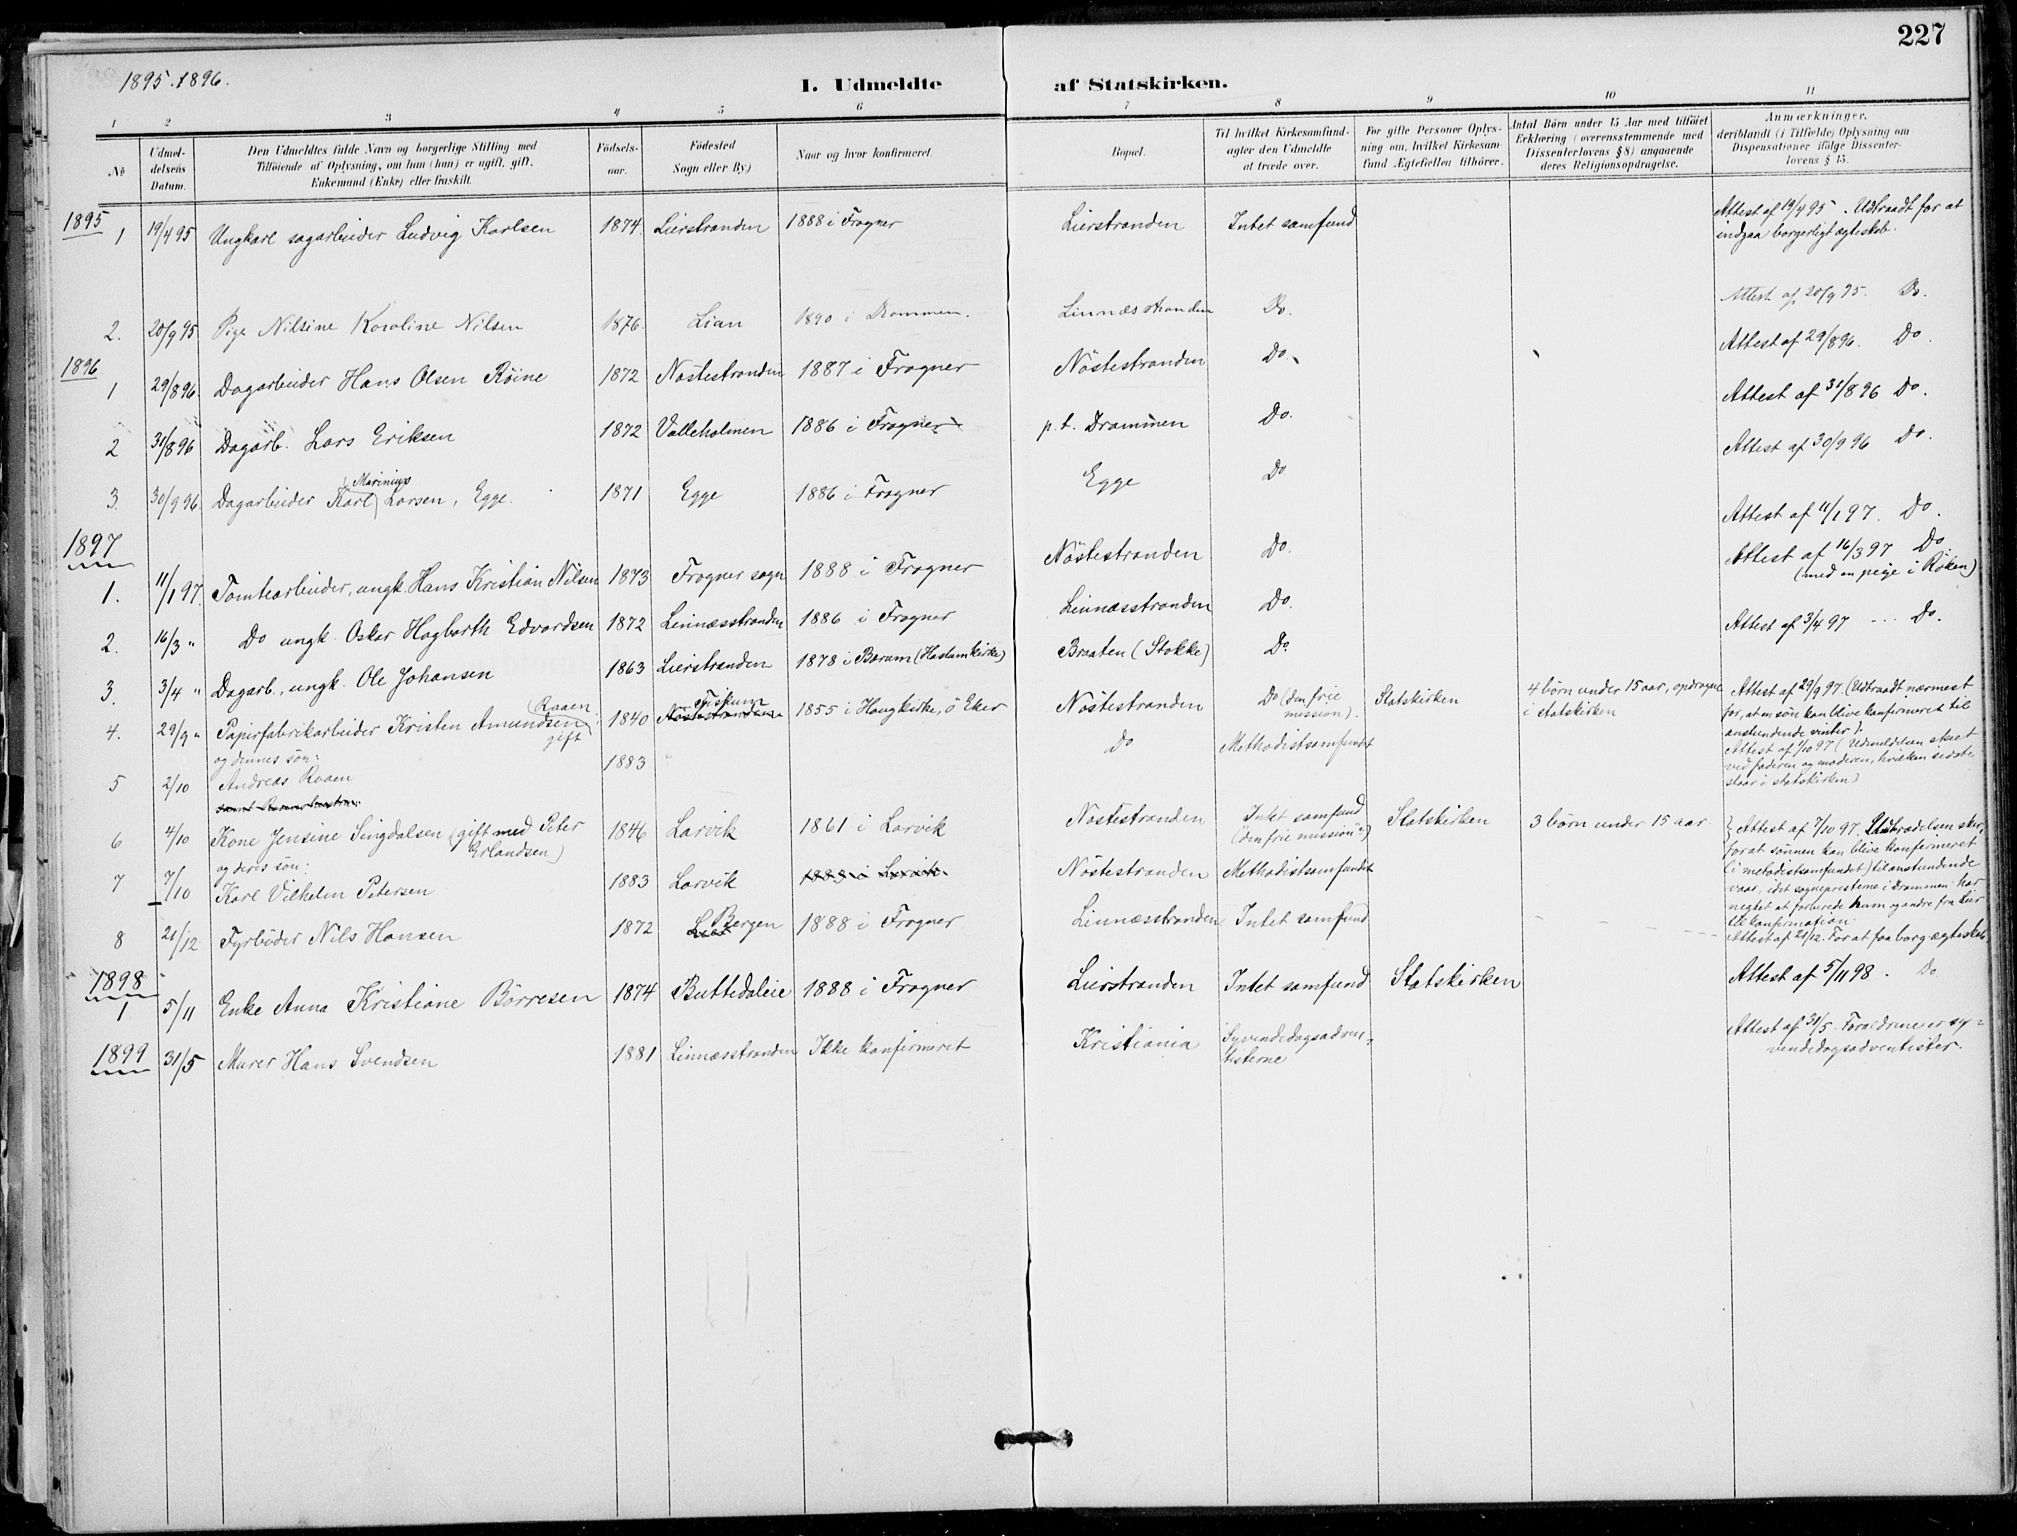 227
1895.1896.
I. Udmeldte af Statskirken.
1 2 3 4 5 6 7 8 9 10 11
No
Udmel-
delsens
Datum.
Den Udmeldtes fulde Navn og borgerlige Stilling med
Tilføiende af Oplysning, om han (hun) er ugift, gift,
Enkemand (Enke) eller fraskilt.
Fødsels-
aar.
Fødested
Sogn eller By)
Naar og hvor konfirmeret.
Bopæl.
Til hvilket Kirkesamfund
agter den Udmeldte
at træde over.
For gifte Personer Oplys-
ning om, hvilket Kirkesam-
fund Ægtefællen tilhører.
Antal Børn under 15 Aar med tilføiet
Erklæring (overensstemmende med
Dissenterlovens § 8) angaaende
deres Religionsopdragelse.
Anmærkninger,
deriblandt (i Tilfælde) Oplysning om
Dispensationer ifølge Dissenter-
lovens § 15.
1895
1 19/4 95 Ungkarl sagarbeider Ludvig Karlsen 1874 Lierstranden 1888 i Frogner Lierstranden Intet samfund Attest af 19/4 95. Udtraadt for at
indgaa borgerligt ægteskab.
2. 20/9 95 Pige Nilsine Karoline Nilsen 1876. Lian 1890 i Drammen. Linnæsstranden Do. Attest af 20/9 95. Do.
1896
1 29/8 96. Dagarbeider Hans Olsen Röine 1872 Nöstestranden 1887 i Frogner Nöstestranden Do. Attest af 29/8 96. Do.
2 31/8 96 Dagarb. Lars Eriksen 1872 Valleholmen 1886 i Frogner p.t. Drammen Do. Attest af 31/8 96 Do.
Marinius
3. 30/9 96. Dagarbeider Karl Larsen, Egge. 1871 Egge 1886 i Frogner Egge Do Attest af 30/9 96 Do.
1897
1. 11/1 97. Tomtearbeider, ungk. Hans Kristian Nilsen 1873 Frogner sogn 1888 i Frogner Nöstestranden Do. Attest af 11/1 97. Do.
2. 16/3 " Do ungk. Oskar Hagbarth Edvardsen 1872 Linnæsstranden 1886 i Frogner Linnæsstranden Do. Attest af 16/3 97 Do
(med en pige i Röken)
3. 3/4 " Dagarb., ungk. Ole Johansen 1863 Lierstranden 1878 i Bærum (Haslumkirke) Braaten (Stokke) Do. Attest af 3/4 97 --- Do.
Raaen
Fiskum
4. 29/9 " Papirfabrikarbeider Kristen Amundsen gift 1840 Nöstestranden 1855 i Hougkirke, ö Eker Nöstestranden Do (den frie
mission). Statskirken 4 börn under 15 aar, opdragne
i statskirken Attest af 29/9 97. (Udtraadt nærmest
for, at en sön kan blive konfirmeret til
anstundende vinter).
og dennes sön:
5 2/10 Andreas Raaen 1883 " Do Methodistsamfundet Attest af 2/10 97 (Udmeldelsen skeet
ved faderen og moderen, hvilken sidste
staar i statskirken)
6 4/10 Kone Jensine Singdalsen (gift med Peter
Erlandsen) 1846 Larvik 1861 i Larvik Nöstestranden Intet samfund
("den frie mission") Statskirken 3 börn under 15 aar Attest af 7/10 97. Udtrædelsen sker,
forat sönnen kan blive konfirmeret
(i metodistsamfundet) til anstundende
vaar, idet sognepresterne i Drammen har
negtet at forberede ham og andre fra Lier
til konfirmation.
og deres sön:
7 7/10 Karl Vilhelm Petersen 1883 Larvik 1883 i Larvik. Nöstestranden Methodistsamfundet
8 21/12 Fyrböder Nils Hansen 1872 Lier Bergen 1888 i Frogner Linnæsstranden Intet samfund Attest af 21/12. For at faa borg. ægteskab
1898
1 5/11 Enke Anna Kristiane Börresen 1874 Buttedaleie 1888 i Frogner Lierstranden Intet samfund Statskirken Attest af 5/11 98. Do
1899
31/5 Murer Hans Svendsen 1881 Linnæsstranden Ikke konfirmeret Kristiania Syvendedagsadven-
tisterne Attest af 31/5. Forældrene er sy-
vendedagsadventister.